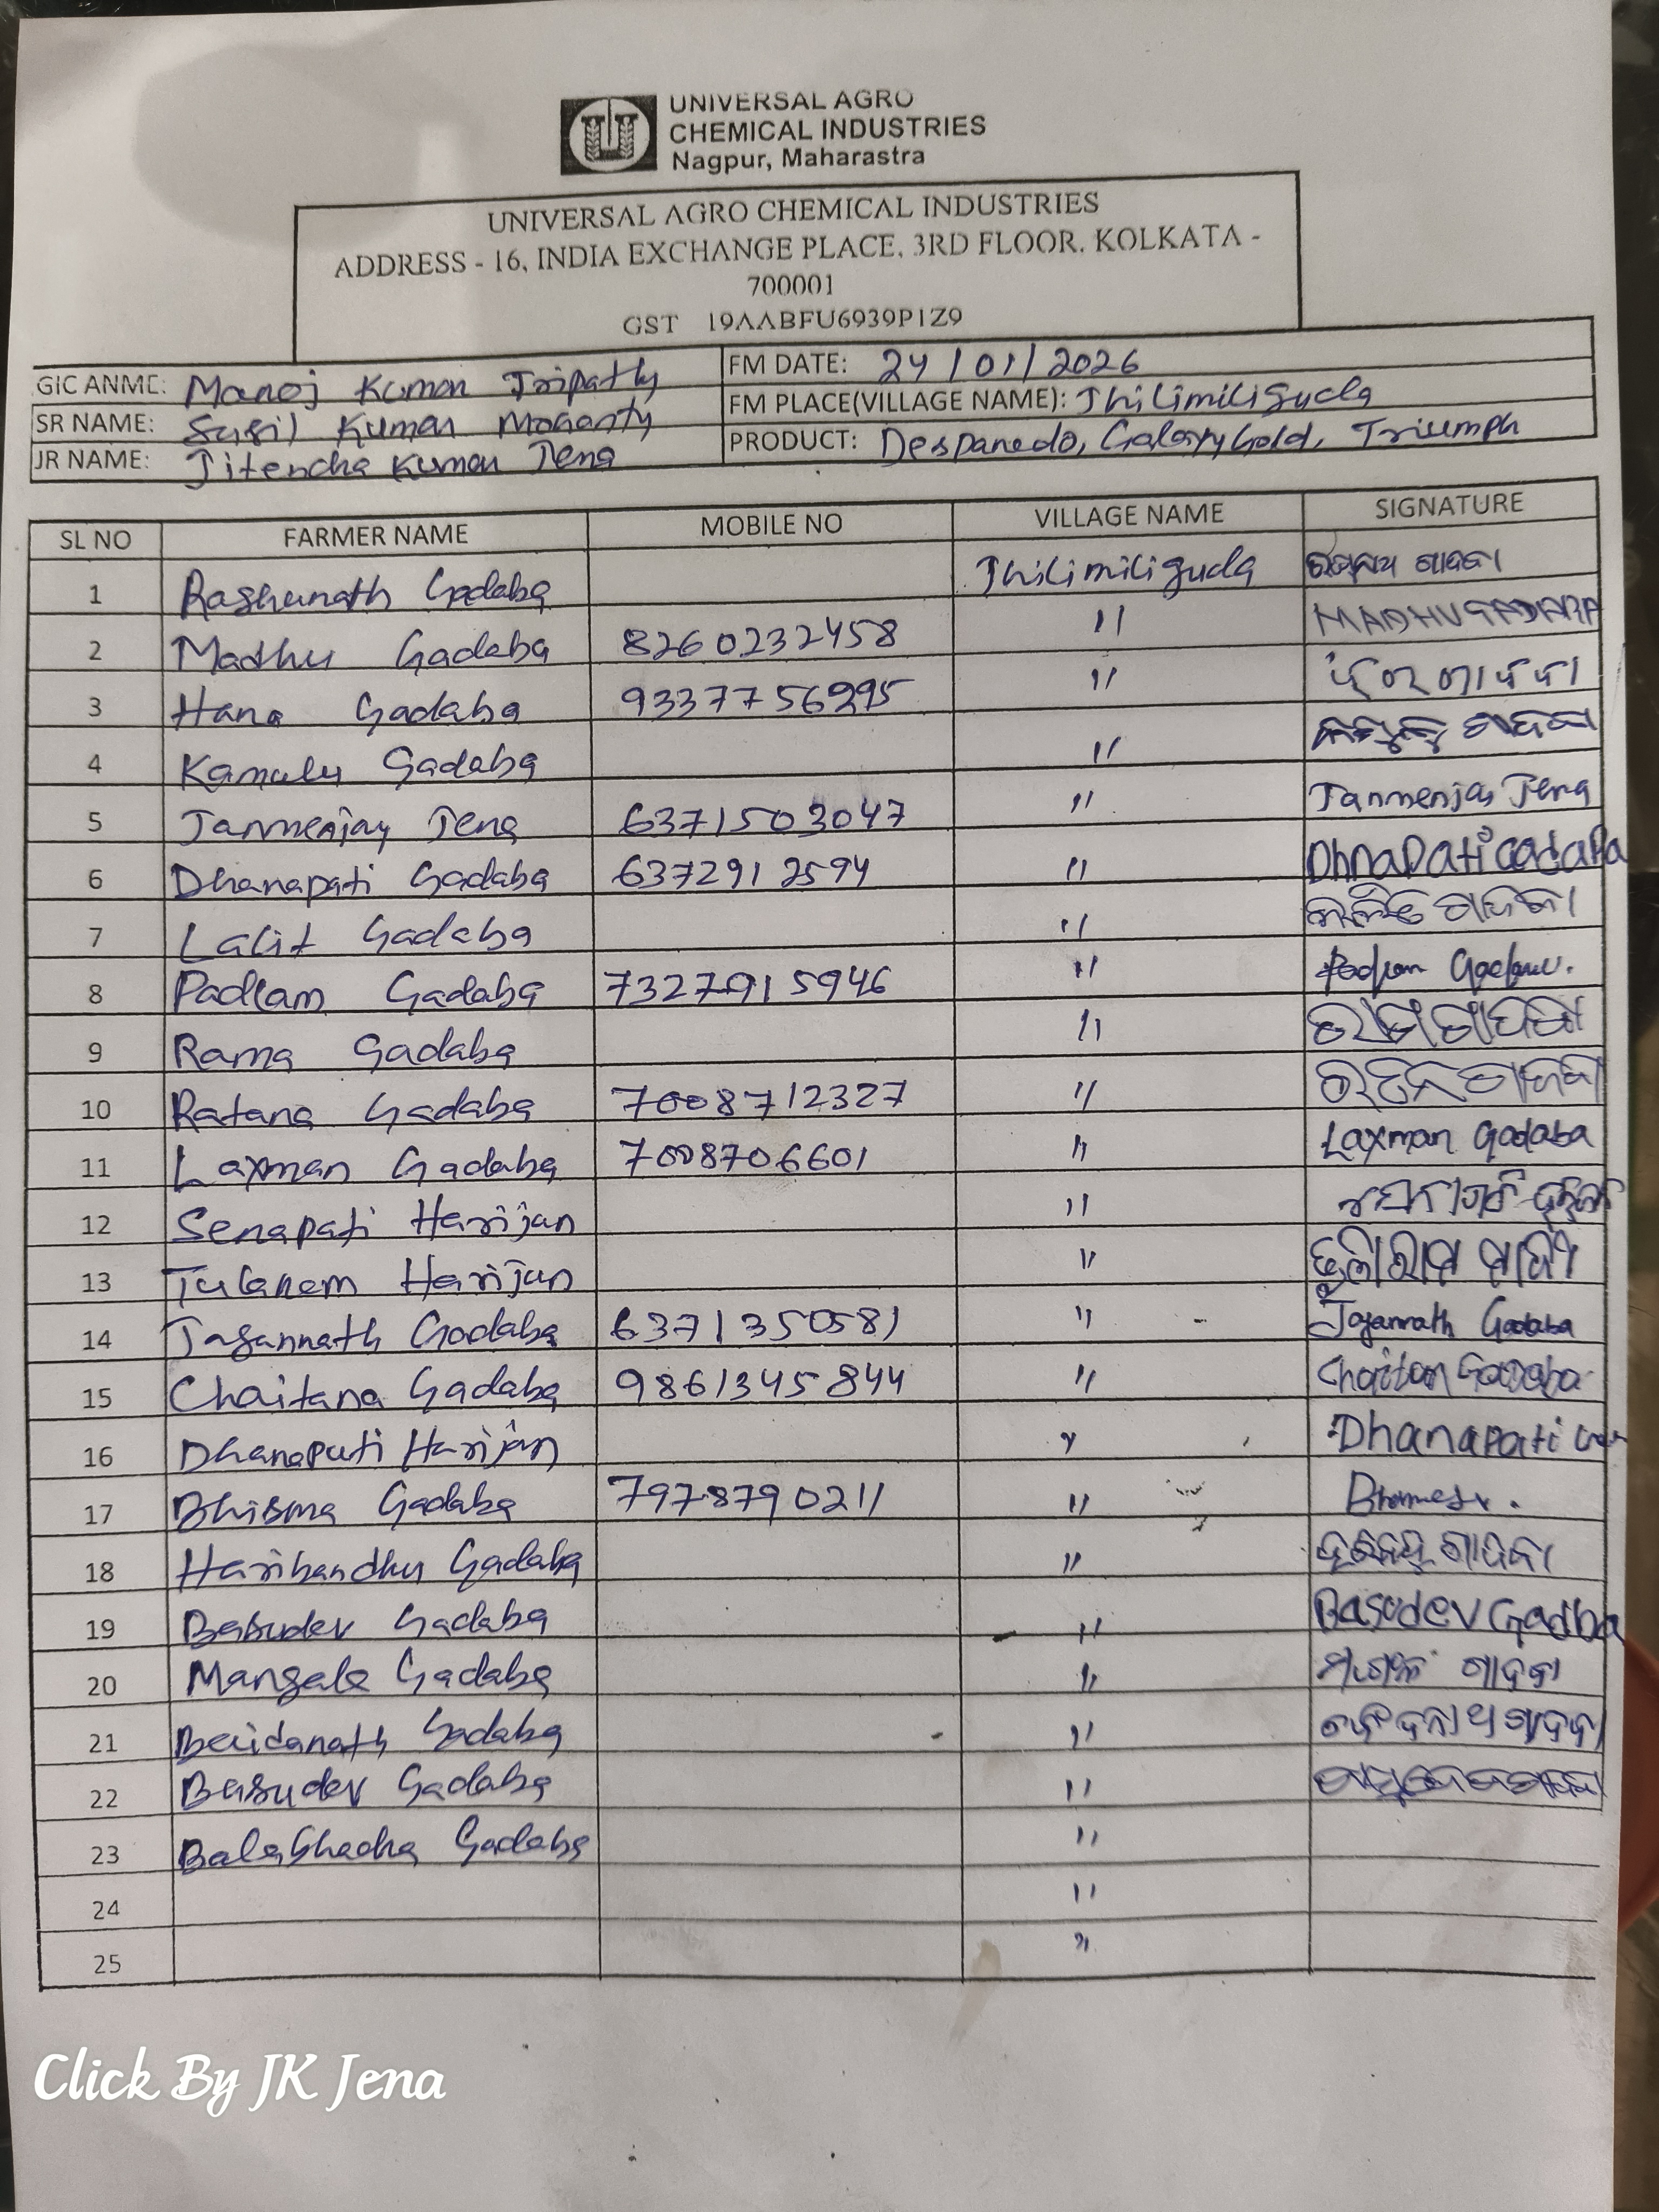 UNIVERSAL AGRO
CHEMICAL INDUSTRIES
Nagpur, Maharastra
UNIVERSAL AGRO CHEMICAL INDUSTRIES
ADDRESS - 16, INDIA EXCHANGE PLACE, 3RD FLOOR. KOLKATA -
700001
GST 19AABFU6939P1Z9
GIC ANME: Manoj Kumar Tripathy FM DATE: 24/01/2026
SR NAME: Susil Kumar Mohanty FM PLACE(VILLAGE NAME): Jhilimiliguda
JR NAME: Jitendra Kumar Jena PRODUCT: Desparedo, Galaxy Gold, Triumph
SL NO FARMER NAME MOBILE NO VILLAGE NAME SIGNATURE
1 Raghunath Gadaba Jhilimiliguda ରଘୁନାଥ ଗାଦବା
2 Madhu Gadaba 8260232458 " MADHU GADABA
3 Hara Gadaba 9337756295 " ଗାଦବା
4 Kamulu Gadaba " ଗାଦବା
5 Janmenjay Jena 6371503047 " Janmenjay Jena
6 Dhanapati Gadaba 6372912594 " DhnaPati GadaBa
7 Lalit Gadaba " ଲଳିତ ଗାଦବା
8 Padlam Gadaba 7327915946 "
9 Rama Gadaba " ରାମ ଗାଦବା
10 Ratana Gadaba 7008712327 " ରତନ ଗାଦବା
11 Laxman Gadaba 7008706601 " Laxman Gadaba
12 Senapati Harijan "
13 Tularam Harijan " ତୁଳାରାମ
14 Jagannath Gadaba 6371350581 " Jagannath Gadaba
15 Chaitana Gadaba 9861345844 " Chaitan Gadaba
16 Dhanapati Harijan " Dhanapati
17 Bhisma Gadaba 7978790211 "
18 Haribandhu Gadaba " ହରିବନ୍ଧୁ ଗାଦବା
19 Basudev Gadaba " Basudev Gadba
20 Mangala Gadaba " ମଙ୍ଗଳ ଗାଦବା
21 Baidanath Gadaba " ଗାଦବା
22 Basudev Gadaba "
23 Balabhadra Gadaba "
24 "
25 "
Click By JK Jena